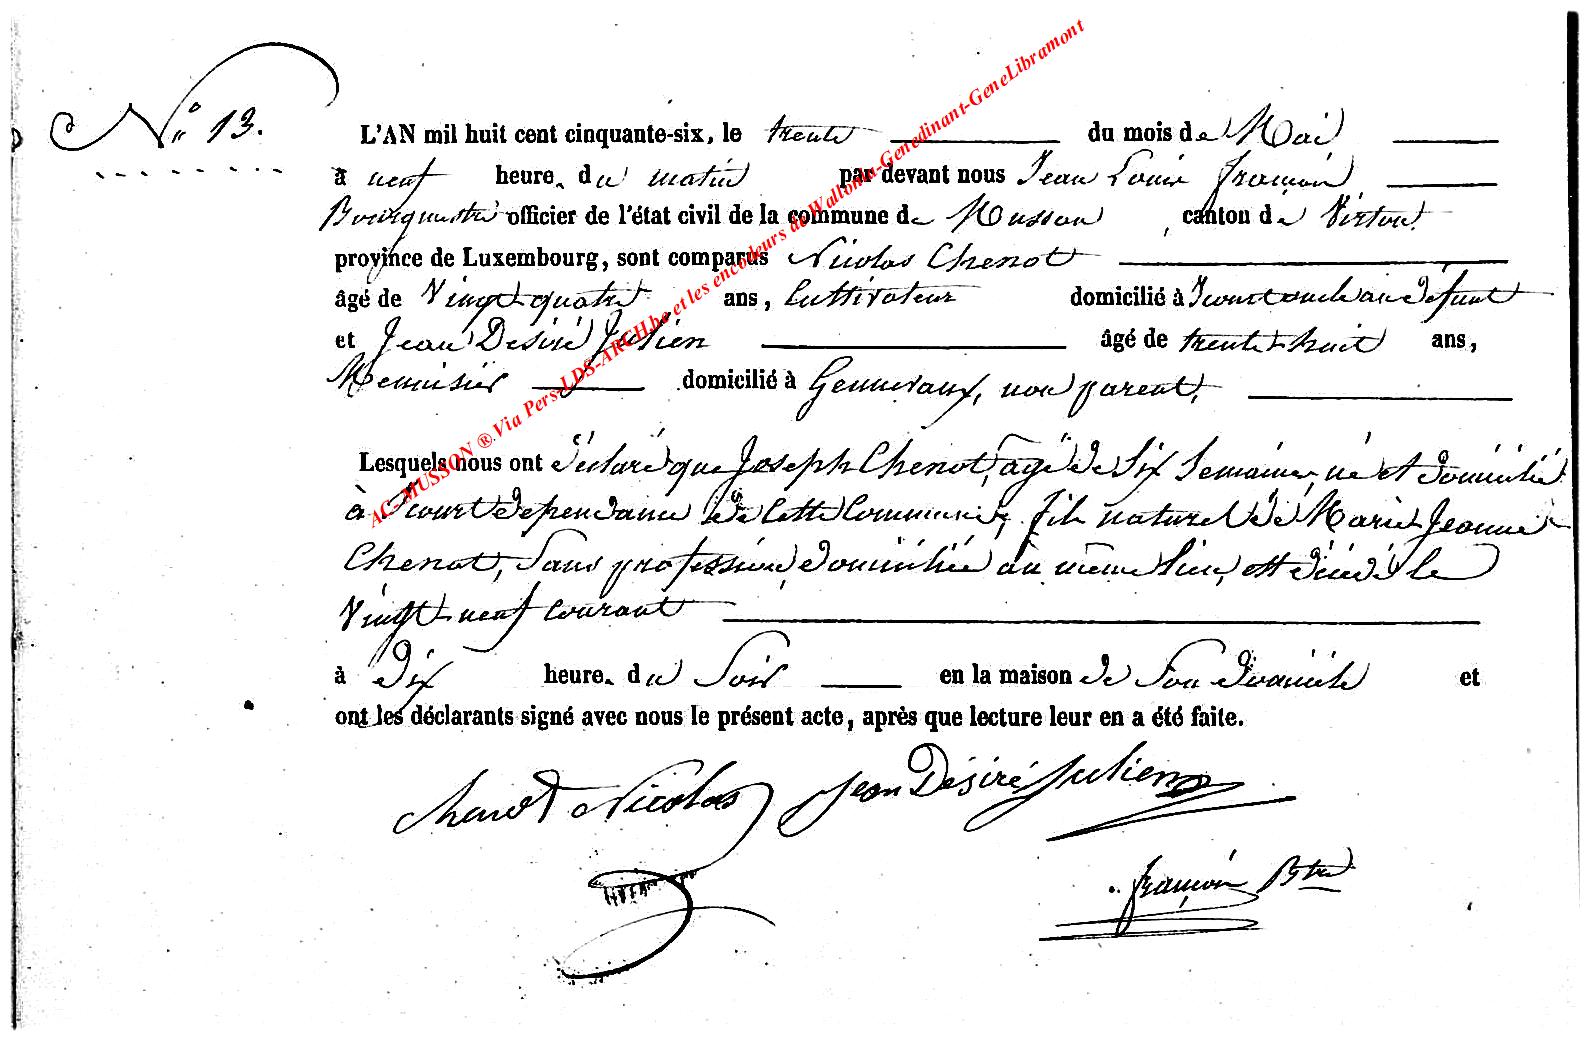 N° 13.
L'AN mil huit cent cinquante-six, le trente du mois de Mai
à neuf heures du matin par devant nous Jean Louis François,
Bourgmestre officier de l'état civil de la commune de Musson, canton de Virton,
province de Luxembourg, sont comparus Nicolas Chenot
âgé de Vingt-quatre ans, Cultivateur domicilié à Icourt oncle au défunt
et Jean Désiré Julien âgé de trente-huit ans,
Menuisier domicilié à Gennevaux, non parent,
Lesquels nous ont déclaré que Joseph Chenot, âgé de Six Semaines, né et domicilié
à Icourt dépendance de cette Commune, fils naturel de Marie Jeanne
Chenot, Sans profession, domiciliée au même lieu, est décédé le
Vingt-neuf courant
à Dix heures du Soir en la maison de Son domicile et
ont les déclarants signé avec nous le présent acte, après que lecture leur en a été faite.
Chenot Nicolas Jean Désiré Julien
François Btre
AC-MUSSON ® Via Pers-LDS-ARCH.be et les encodeurs de Wallonia-Genedinant-GeneLibramont